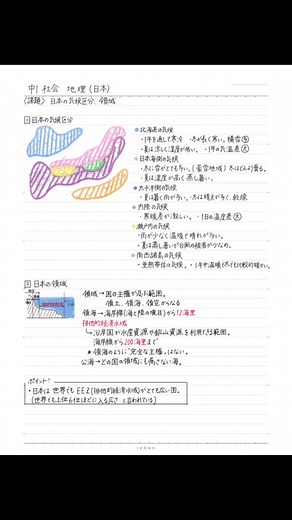 中1 社会 地理(日本)
〈課題〉 日本の気候区分、領域
1 日本の気候区分
・北海道の気候
・1年を通して寒冷 冬が長く寒い。積雪多
・夏は涼しく湿度が低い。・1年の気温差大
・日本海側の気候
・冬に雪がとても多い。(豪雪地域) 冬はどんより曇る。
・夏は湿度が高く蒸し暑い。
・太平洋側の気候
・夏は暑く雨が多い。・冬は晴天が多く、乾燥
・内陸の気候
・寒暖差が激しい。・1日の温度差大
・瀬戸内の気候
・雨が少なく温暖で晴れが多い。
・夏は蒸し暑いが台風の被害が少なめ。
・南西諸島の気候
・亜熱帯性の気候。・1年中温暖で冬でも比較的暖かい。
2 日本の領域
領域→国の主権が及ぶ範囲。
領土、領海、領空からなる
領海→海岸線(海と陸の境目)から12海里
排他的経済水域
→沿岸国が水産資源や鉱山資源を利用できる範囲。
海岸線から200海里まで
※領海のように"完全な主権"はない。
公海→どの国の領域にも属さない海。
ポイント!
・日本は世界でもEEZ(排他的経済水域)がとても広い国。
(世界でも上位6位ほどに入る広さと言われている)